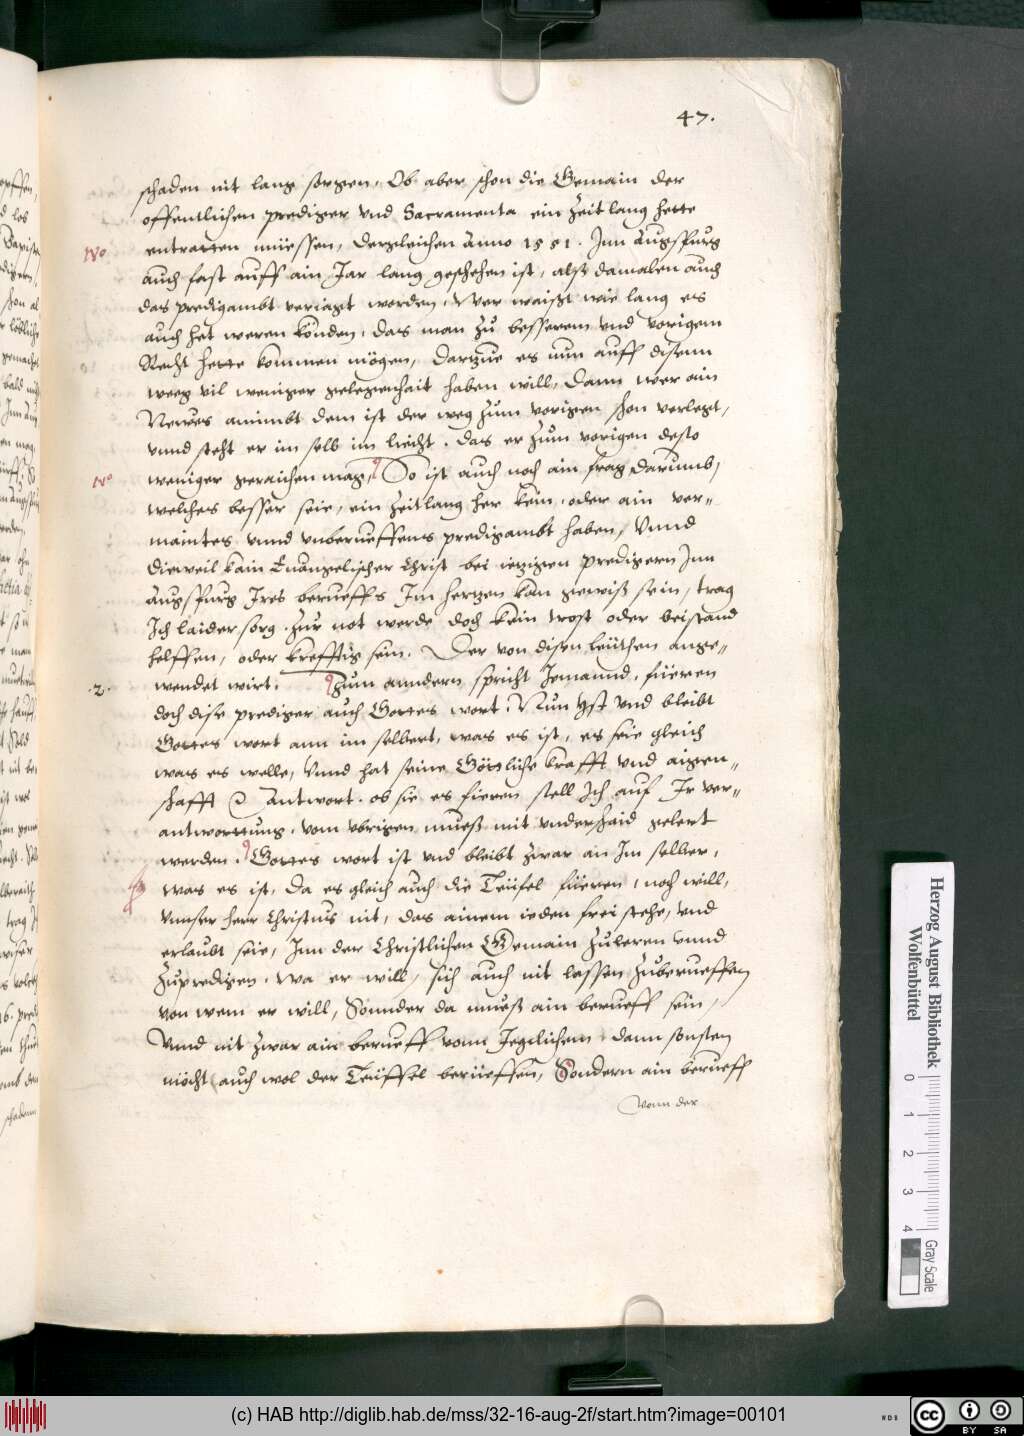 47.
schaden nit lang sorgen, Ob aber schon die Gemain der
offentlichen prediger vnd Sacramenta ein zeit lang hette
No entratten müessen, dergleichen Anno 1551. Jnn Augspurg
auch fast auff ain Jar lang geschehen ist, alß damalen auch
das predigambt veriagt worden, Wer waißt wie lang es
auch het weren könden, das man zu besserem vnd vorigem
Recht hette kommen mögen, Dartzue es nun auff disem
weeg vil weniger gelegenhait haben will, Dann wer ain
Newes animbt dem ist der weg zum vorigen schon verlegt,
vnnd steht er im selb im liecht, das er zum vorigen desto
No weniger geraichen mag, So ist auch noch ain frag darumb,
welches besser seie, ein zeitlang her kein, oder ain ver-
maintes vnnd vnberueffens predigambt haben, Vnnd
Dieweil kain Euangelischer Christ bei ietzigen predigern Jnn
Augspurg Jres berueffs Jm hertzen kan gewiß sein, trag
Jch laider sorg, zur not werde doch kein trost oder beistand
helffen, oder krefftig sein. Der von disen leüthen ange-
.2. wendet wirt. Zum anndern spricht Jemannd, füeren
doch dise prediger auch Gottes wort. Nun Jst vnd bleibt
Gottes wort ann im selbert, was es ist, es seie gleich
was es welle, Vnnd hat seine Göttliche krafft vnd aigen-
schafft Antwort. ob sie es fieren stell Jch auf Jr ver-
antworttung, vom vbrigen mueß mit vnderschaid gelert
werden. Gottes wort ist vnd bleibt zwar an Jm selber,
was es ist, Da es gleich auch die Teüfel füeren, noch will,
vnnser herr Christus nit, das ainem ieden frei stehe, vnd
erlaubt seie, Jnn der Christlichen Gemain zuleren vnnd
zupredigen, wa er will, sich auch nit lassen zuberueffen
von wem er will, Sonnder da mueß ain berueff sein,
Vnnd nit zwar ain berueff vonn Jegclichem, dann sonsten
möcht auch wol der Teüffel berüeffen, Sondern ain berueff
vonn der
Herzog August Bibliothek
Wolfenbüttel
0 1 2 3 4
Gray Scale
(c) HAB http://diglib.hab.de/mss/32-16-aug-2f/start.htm?image=00101
WDB
cc BY SA